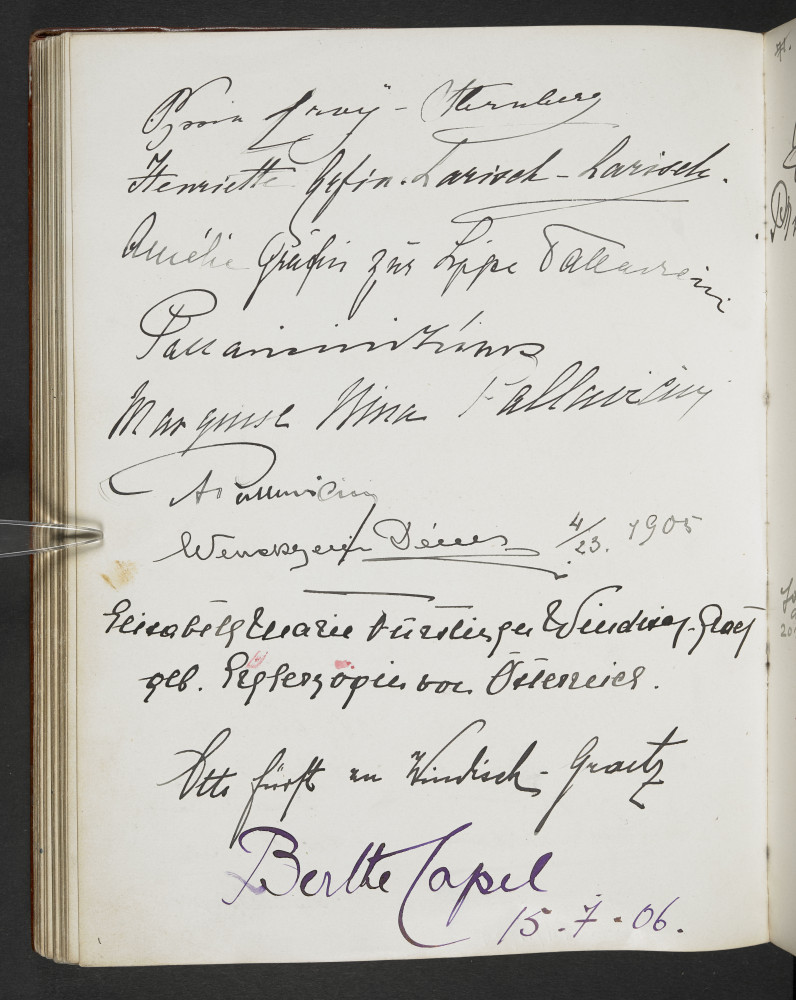 Croÿ-Sternberg
Henriette Gräfin Larisch-Larisch.
Amélie Gräfin zur Lippe Pallavicini
Marquise Nina Pallavicini
A Pallavicini
Dénes 4/23. 1905
Elisabeth Marie Fürstin zu Windisch-Graetz
geb. Erzherzogin von Österreich.
Otto Fürst zu Windisch-Graetz
Berthe Capel
15.7.06.